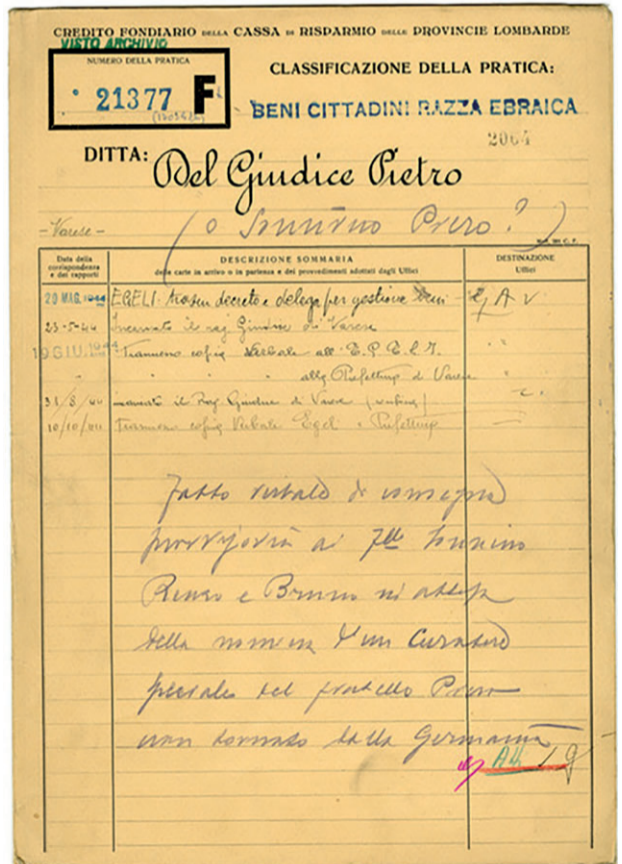 CREDITO FONDIARIO DELLA CASSA DI RISPARMIO DELLE PROVINCIE LOMBARDE
VISTO ARCHIVIO
NUMERO DELLA PRATICA
21377 F
CLASSIFICAZIONE DELLA PRATICA:
BENI CITTADINI RAZZA EBRAICA
2064
DITTA: Del Giudice Pietro
- Varese -
(o Sonnino Piero?)
Data della corrispondenza e dei rapporti
DESCRIZIONE SOMMARIA
delle carte in arrivo o in partenza e dei provvedimenti adottati dagli Uffici
DESTINAZIONE
Uffici
20 MAG. 1944 EGELI. decreto e delega per gestione beni
23-5-44 Incaricato il rag Giudice di Varese
19 GIU. 1944 Trasmesso copia verbale all' E.G.E.L.I.
" " " " alla Prefettura di Varese "
31/8/44 il Rag Giudice di Varese
10/10/44 Trasmesso copia Verbale Egeli e Prefettura
Fatto verbale di consegna
provvisoria ai F.lli Sonnino
Renzo e Bruno in attesa
della nomina d'un curatore
speciale del fratello Piero
non tornato dalla Germania